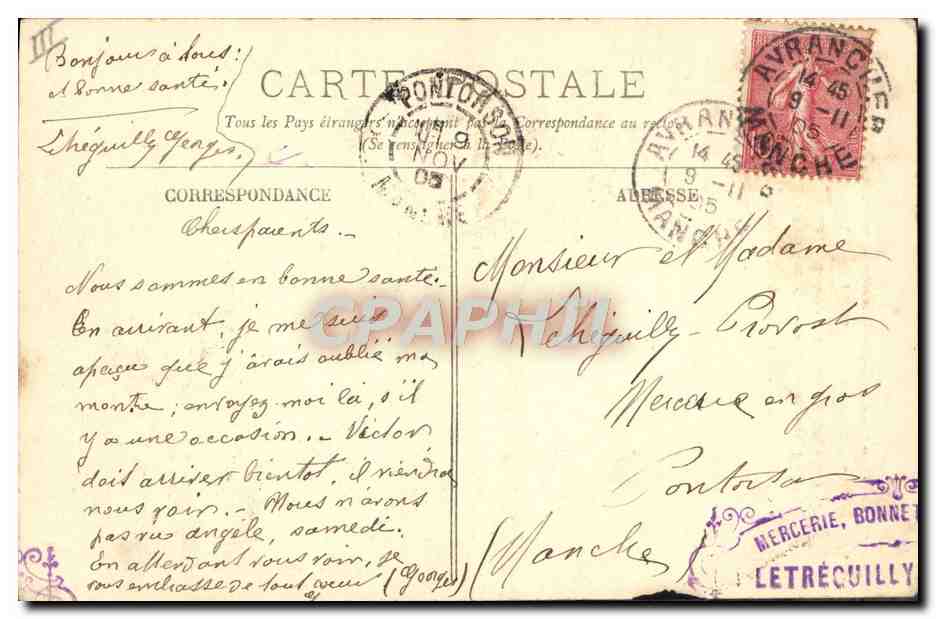 III
Bonjour à tous
et bonne santé
Lhéguilly Georges,
CARTE POSTALE
Tous les Pays étrangers n'acceptent pas la Correspondance au recto
(Se renseigner à la Poste).
PONTORSON
9
NOV
05
AVRANCHES
14 45
9 -11
05
MANCHE
AVRANCHES
14 45
9 -11
05
MANCHE
CORRESPONDANCE
Chers parents. -
Nous sommes en bonne santé. -
En arrivant, je me suis
apaçu que j'avais oublié ma
montre; envoyez-moi la, s'il
y a une occasion. - Victor
doit arriver bientôt, il viendra
nous voir. - Nous n'avons
pas vu Angèle, samedi.
En attendant vous voir, je
vous embrasse de tout cœur (Georges)
ADRESSE
Monsieur et Madame
Lehéguilly-Provost
Mercerie en gros
Pontorson
(Manche)
MERCERIE, BONNET
LETRÉGUILLY
CPAPHIL